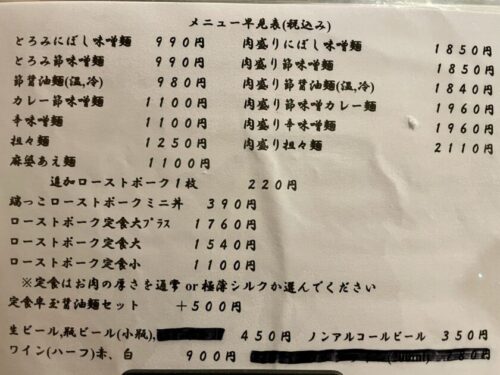 メニュー早見表(税込み)
とろみにぼし味噌麺 990円
とろみ節味噌麺 990円
節醤油麺(温,冷) 980円
カレー節味噌麺 1100円
辛味噌麺 1100円
担々麺 1250円
麻婆あえ麺 1100円
肉盛りにぼし味噌麺 1850円
肉盛り節味噌麺 1850円
肉盛り節醤油麺(温,冷) 1840円
肉盛り節味噌カレー麺 1960円
肉盛り辛味噌麺 1960円
肉盛り担々麺 2110円
追加ローストポーク1枚 220円
端っこローストポークミニ丼 390円
ローストポーク定食大プラス 1760円
ローストポーク定食大 1540円
ローストポーク定食小 1100円
※定食はお肉の厚さを通常 or 極薄シルクか選んでください
定食卑玉醤油麺セット +500円
生ビール,瓶ビール(小瓶), 450円 ノンアルコールビール 350円
ワイン(ハーフ)赤、白 900円